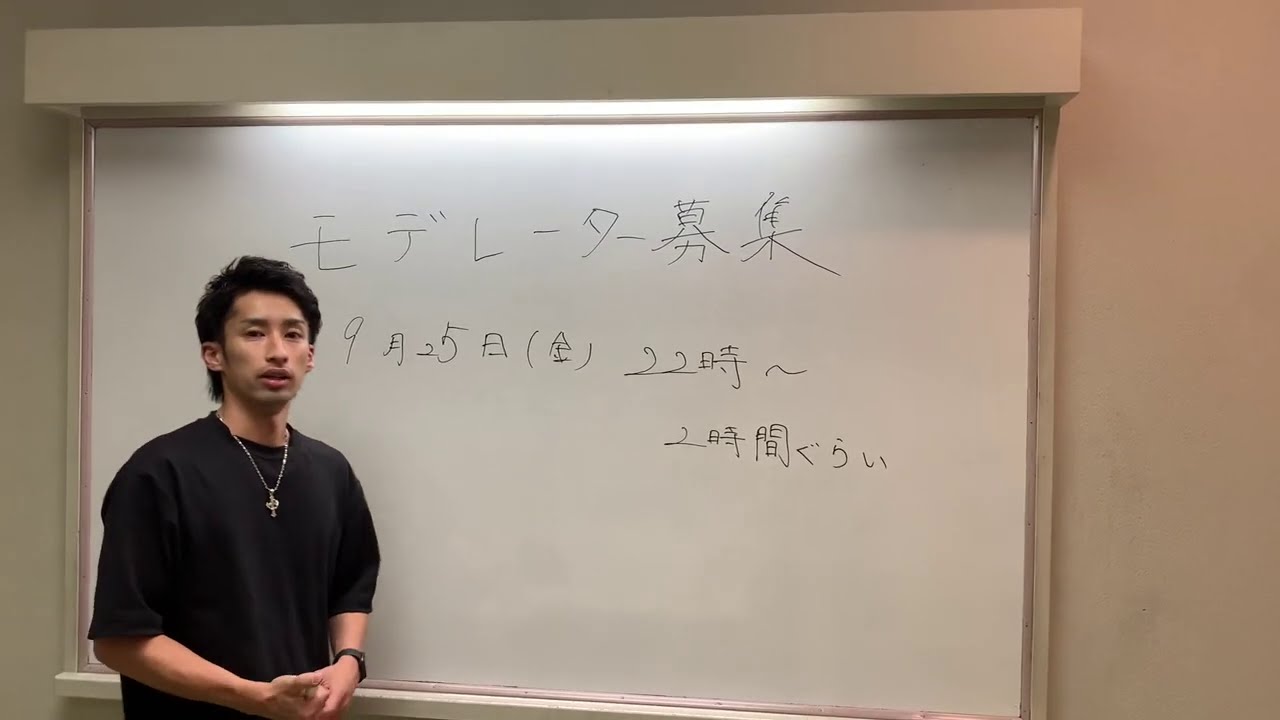 モデレーター募集
9月25日(金) 22時～
2時間ぐらい